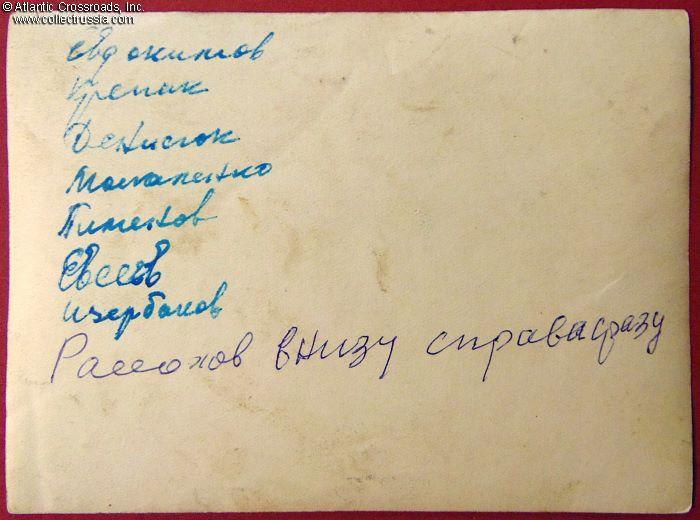 © Atlantic Crossroads, Inc.
www.collectrussia.com
Евдокимов
Крепак
Денисюк
Потапенко
Пименов
Евсеев
Щербаков
Рассохов внизу справа сразу